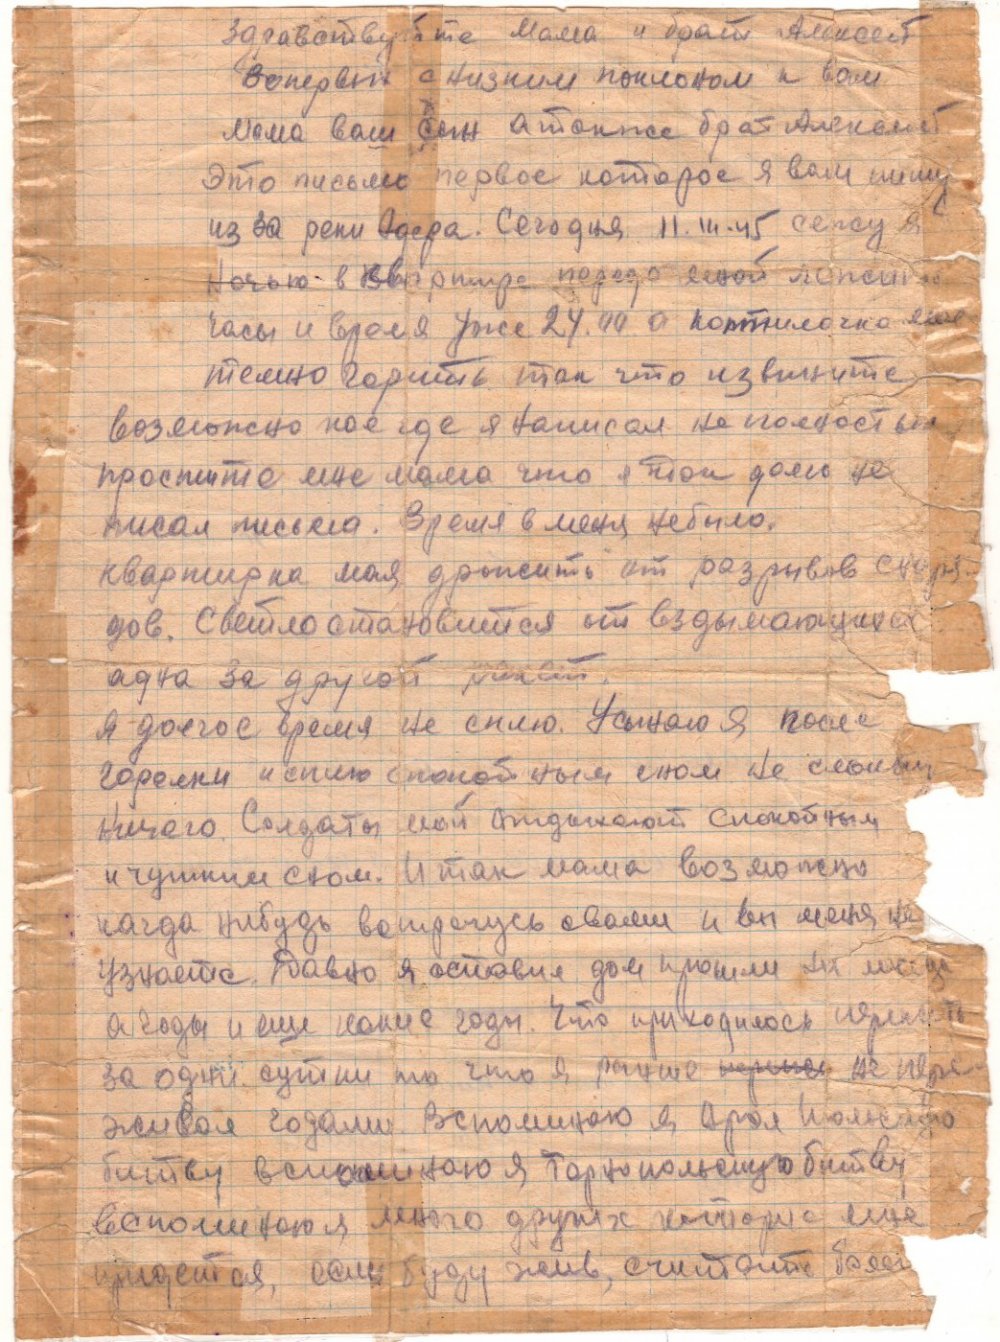 Здравствуйте Мама и брат Алексей
Вопервых с низким поклоном к вам
Мама ваш сын а также брат Алексей
Это письмо первое которое я вам пишу
из за реки Одера. Сегодня 11.III.45 сежу я
ночью в квартире передо мной
часы и время уже 24.00 а коптилочка
темно горить так что извините
возможно кое где я написал не полностью
простите мне мама что я так долго не
писал письма. Время в меня небыло.
квартирка мая дрожить от разрывов снаря-
дов. Светло становится от вздымающихся
адна за другой ракет.
я долгое время не сплю. Усынаю я после
горелки и сплю спокойным сном не слышу
ничего. Солдаты мои отдыхают спокойным
и чутким сном. И так мама возможно
кагда нибудь встречусь свами и вы меня не
узнаете. Давно я оставил дом прошли не месяца
а годы и еще какие годы. Что приходилось
за одни сутки то что я раньше не пере-
живал годами Вспоминаю я
битву вспоминаю я Тарнопольскую битву
вспоминаю я много других которые еще
придется, если буду жив, считайте